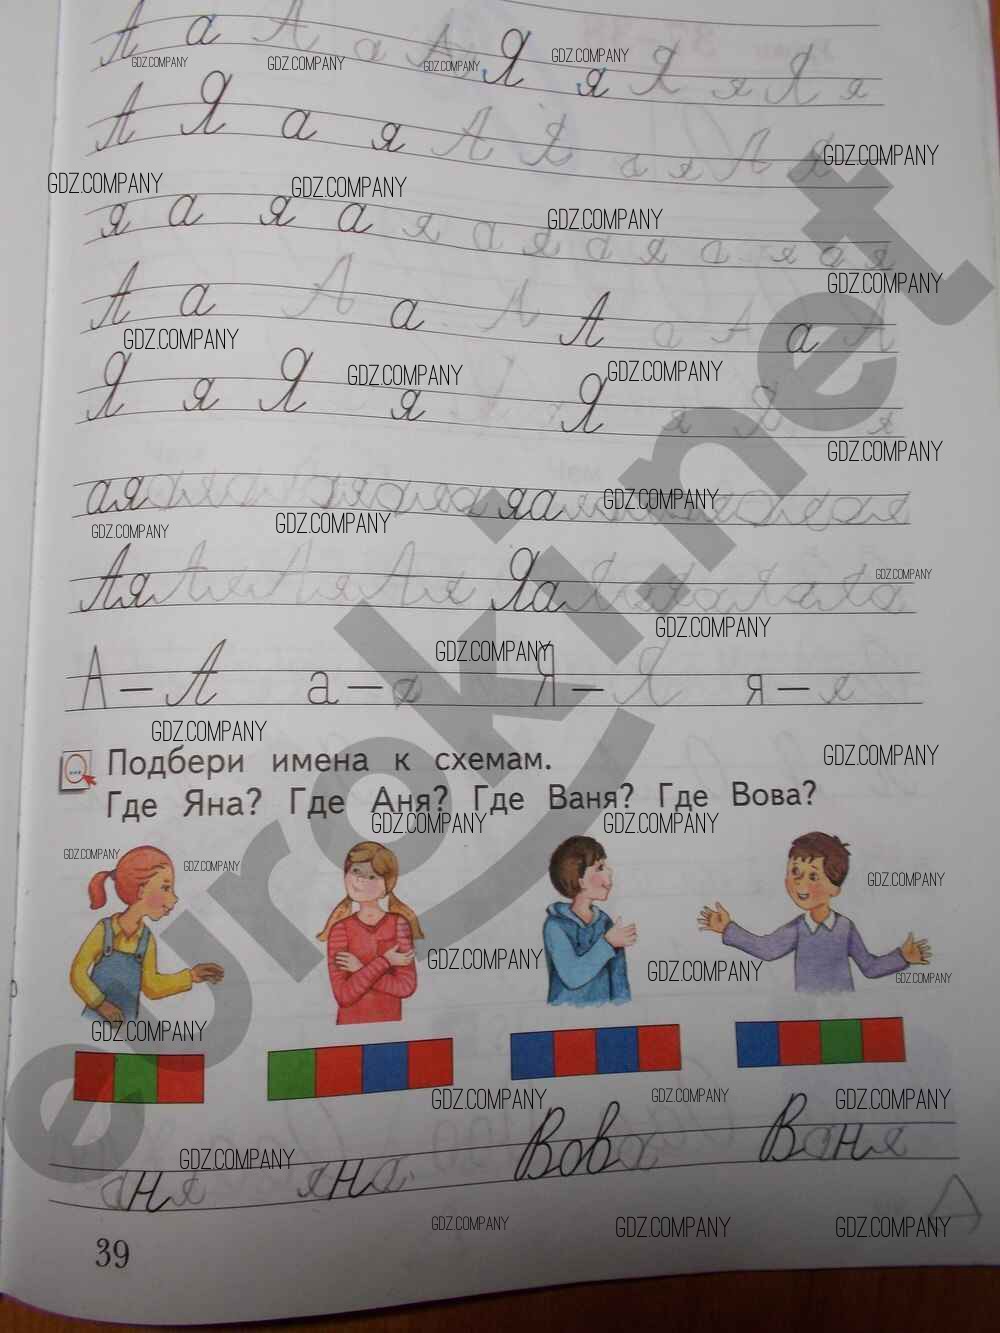 А а А а А Я я Я я Я я
А Я а я А Я а я А Я
я а я а я а я а я а я а я
А а А а А А а А а А
Я я Я я Я я Я я
ая
яа
Ая Ая Ая Ая Яа
А — А а — а Я — Я я — я
Подбери имена к схемам.
Где Яна? Где Аня? Где Ваня? Где Вова?
аня яна Вова Ваня
39
GDZ.COMPANY
euroki.net